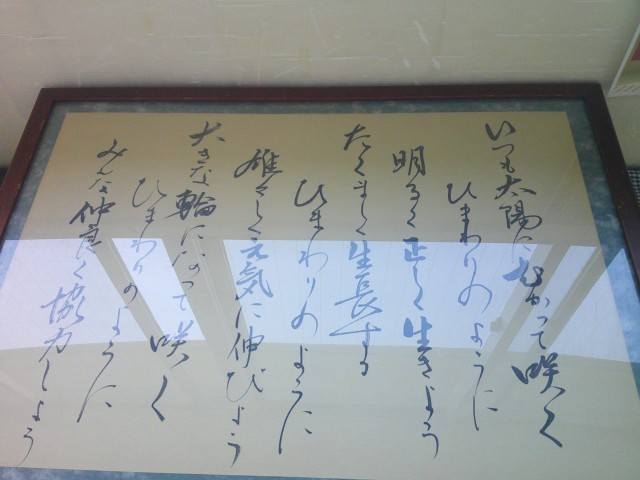 いつも太陽にむかって咲く
ひまわりのように
明るく正しく生きよう
たくましく生長する
ひまわりのように
雄々しく元気に伸びよう
大きな輪になって咲く
ひまわりのように
みんな仲良く協力しよう